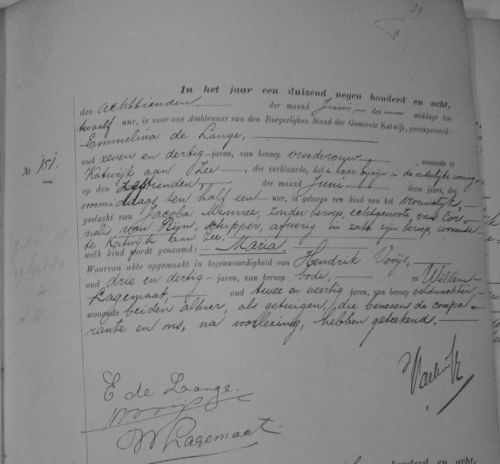 29
In het jaar een duizend negen honderd en acht,
den achttienden der maand Juni des middags ten
twaalf ure, is voor ons Ambtenaar van den Burgerlijken Stand der Gemeente Katwijk, gecompareerd:
Emmelina de Lange,
No 151. oud zeven en dertig jaren, van beroep vroedvrouw, wonende te
Katwijk aan Zee, die verklaarde, dat in haar bijzijn in de echtelijke woning
op den zestienden der maand Juni dezes jaars, des
middags ten half een ure, is geboren een kind van het vrouwelijk
geslacht van Jacoba Mannee, zonder beroep, echtgenoote van Cor-
nelis van Rijn, schipper, afwezig in zake zijn beroep, wonende
te Katwijk aan Zee,
welk kind wordt genaamd: Maria
Waarvan akte opgemaakt in tegenwoordigheid van Hendrik
oud drie en dertig jaren, van beroep bode, en Willem
Lagemaat, oud twee en veertig jaren, van beroep veldwachter,
woonende beiden alhier, als getuigen, die benevens de compa-
rante en ons, na voorlezing, hebben geteekend.
E de Lange.
W Lagemaat
honderd en acht,